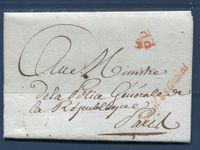 Au Ministre
de la Police Générale de
la République
Paris